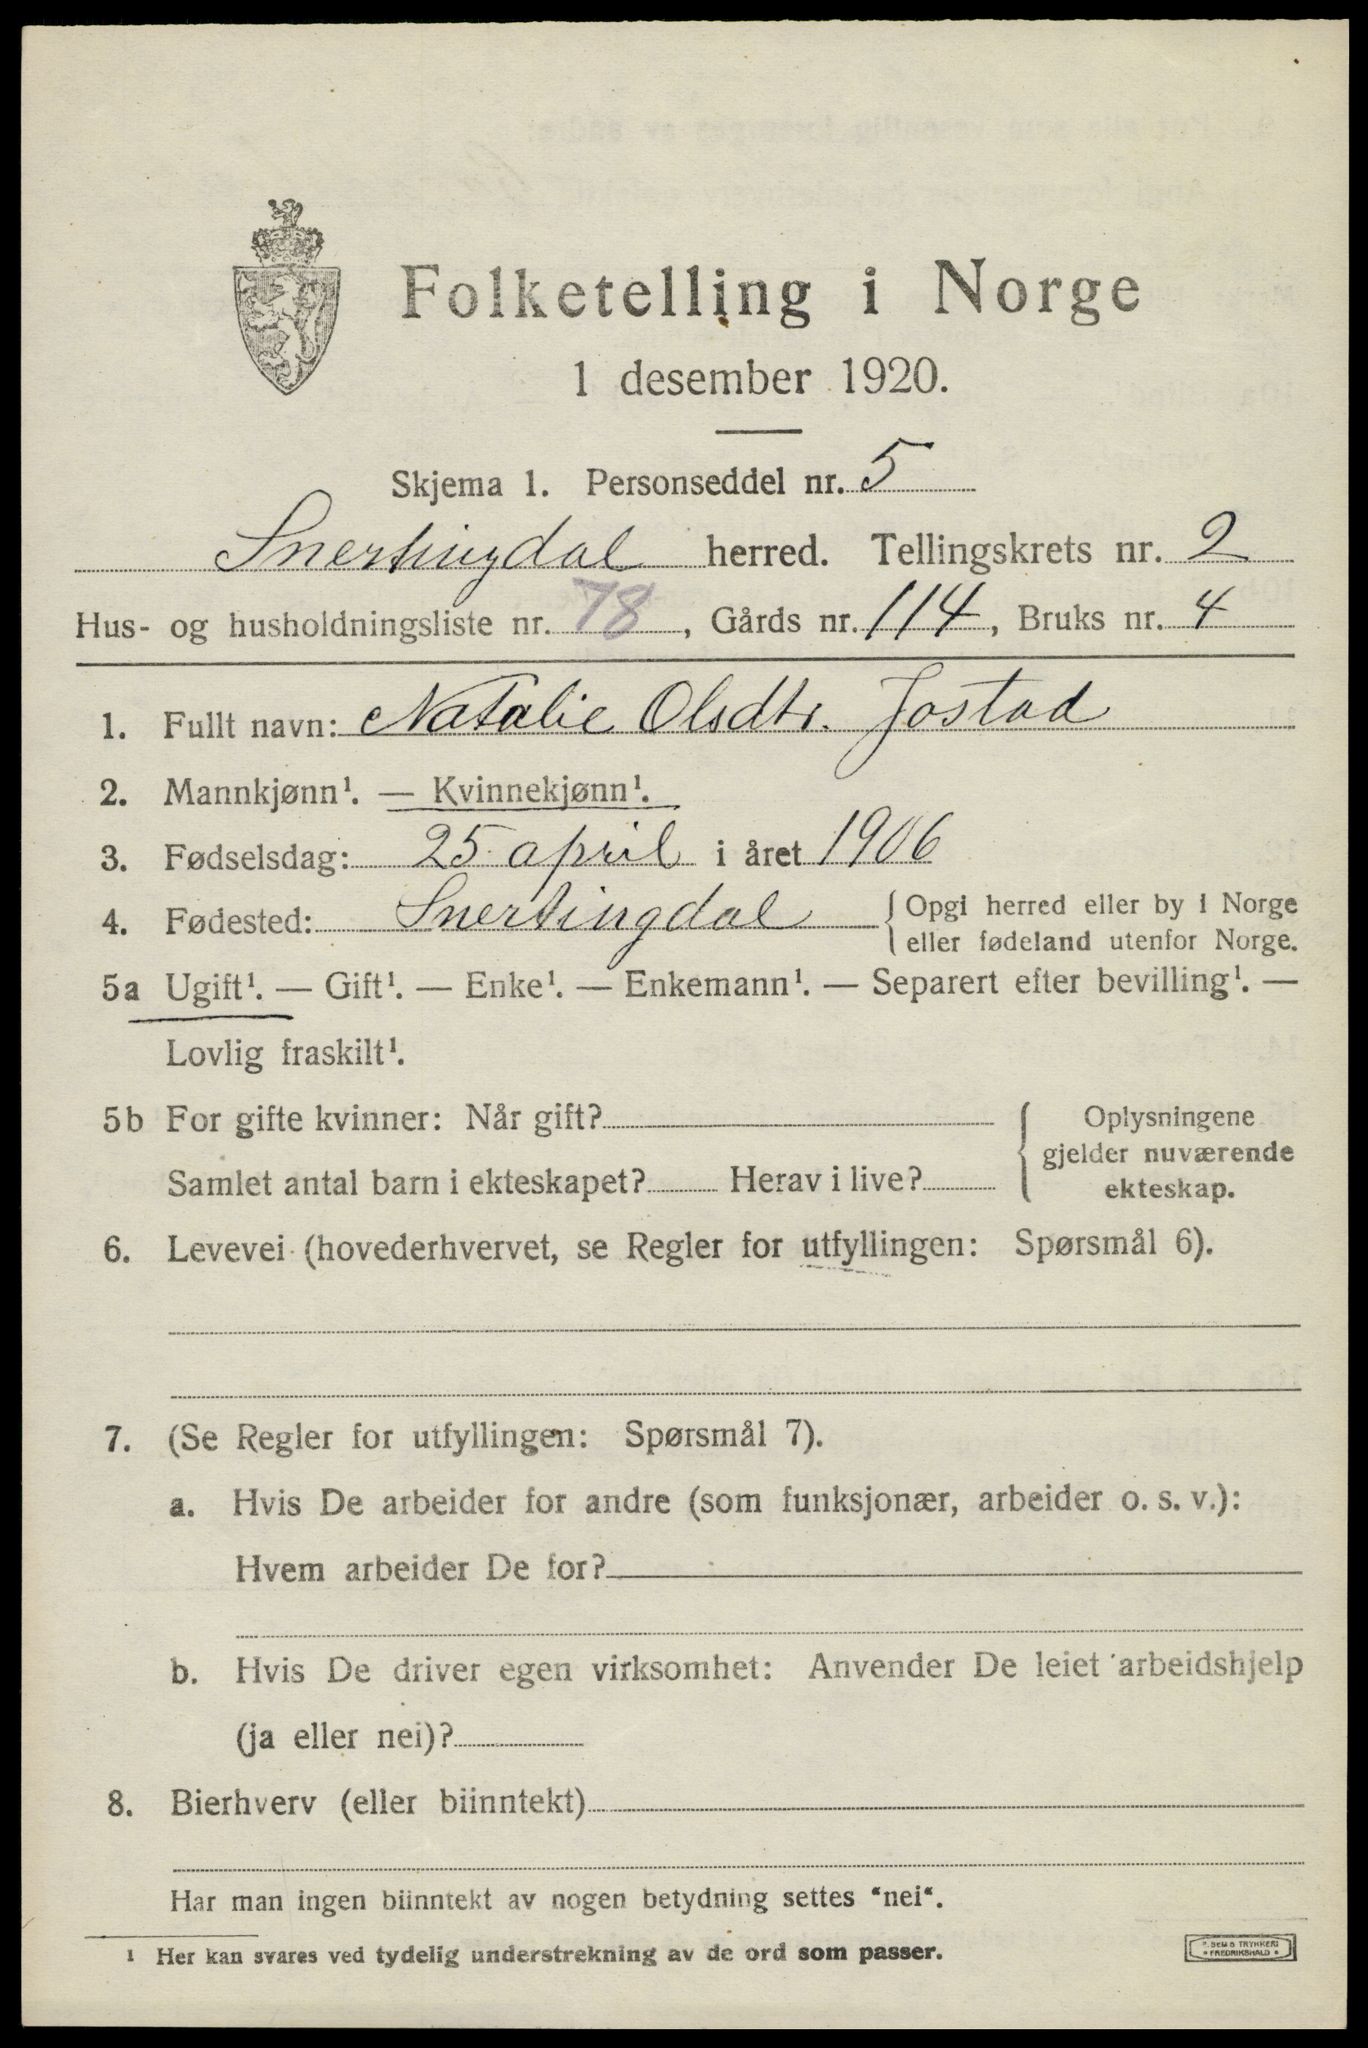 Folketelling i Norge
1 desember 1920.
Skjema 1. Personseddel nr. 5
Snertingdal herred. Tellingskrets nr. 2
Hus- og husholdningsliste nr. 78, Gårds nr. 114, Bruks nr. 4
1. Fullt navn: Natalie Olsdtr. Jostad
2. Mannkjønn¹. — Kvinnekjønn¹.
3. Fødselsdag: 25 april i året 1906
4. Fødested: Snertingdal { Opgi herred eller by i Norge
eller fødeland utenfor Norge.
5a Ugift¹. — Gift¹. — Enke¹. — Enkemann¹. — Separert efter bevilling¹. —
Lovlig fraskilt¹.
5b For gifte kvinner: Når gift? { Oplysningene
gjelder nuværende
Samlet antal barn i ekteskapet? Herav i live? ekteskap.
6. Levevei (hovederhvervet, se Regler for utfyllingen: Spørsmål 6).
7. (Se Regler for utfyllingen: Spørsmål 7).
a. Hvis De arbeider for andre (som funksjonær, arbeider o. s. v.):
Hvem arbeider De for?
b. Hvis De driver egen virksomhet: Anvender De leiet arbeidshjelp
(ja eller nei)?
8. Bierhverv (eller biinntekt)
Har man ingen biinntekt av nogen betydning settes "nei".
¹ Her kan svares ved tydelig understrekning av de ord som passer.
SEM & TRYKKERI
FREDRIKSHALD